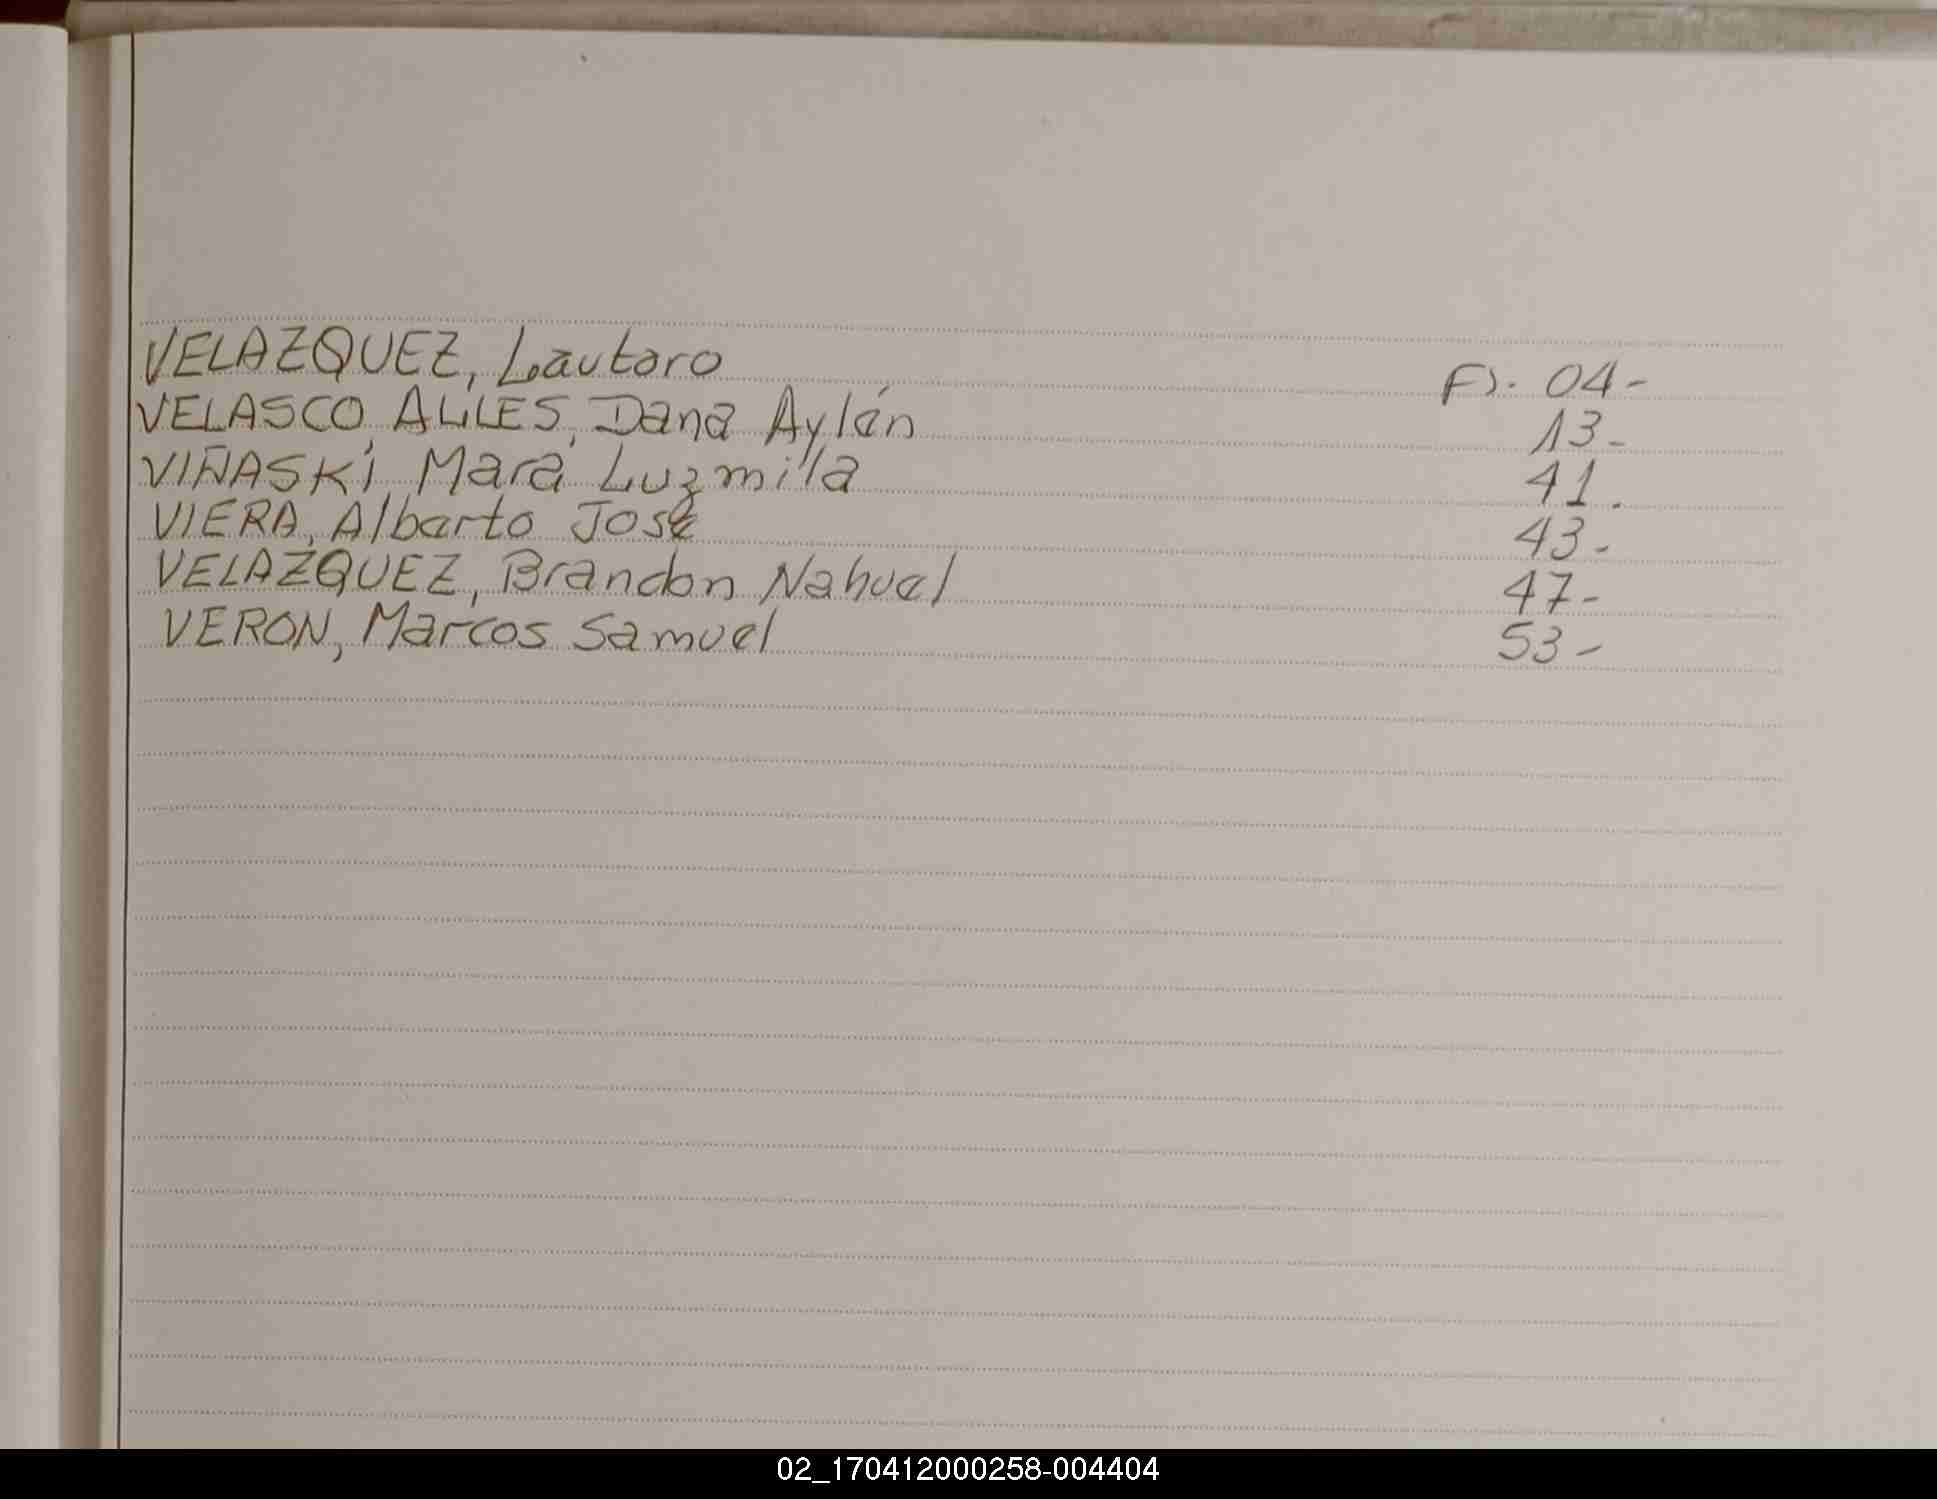 VELAZQUEZ, Lautaro Fs. 04-
VELASCO ALILES, Dana Aylén 13-
VIÑASKI, Mara Luzmila 41.
VIERA, Alberto José 43-
VELAZQUEZ, Brandon Nahuel 47-
VERON, Marcos Samuel 53-
02_170412000258-004404